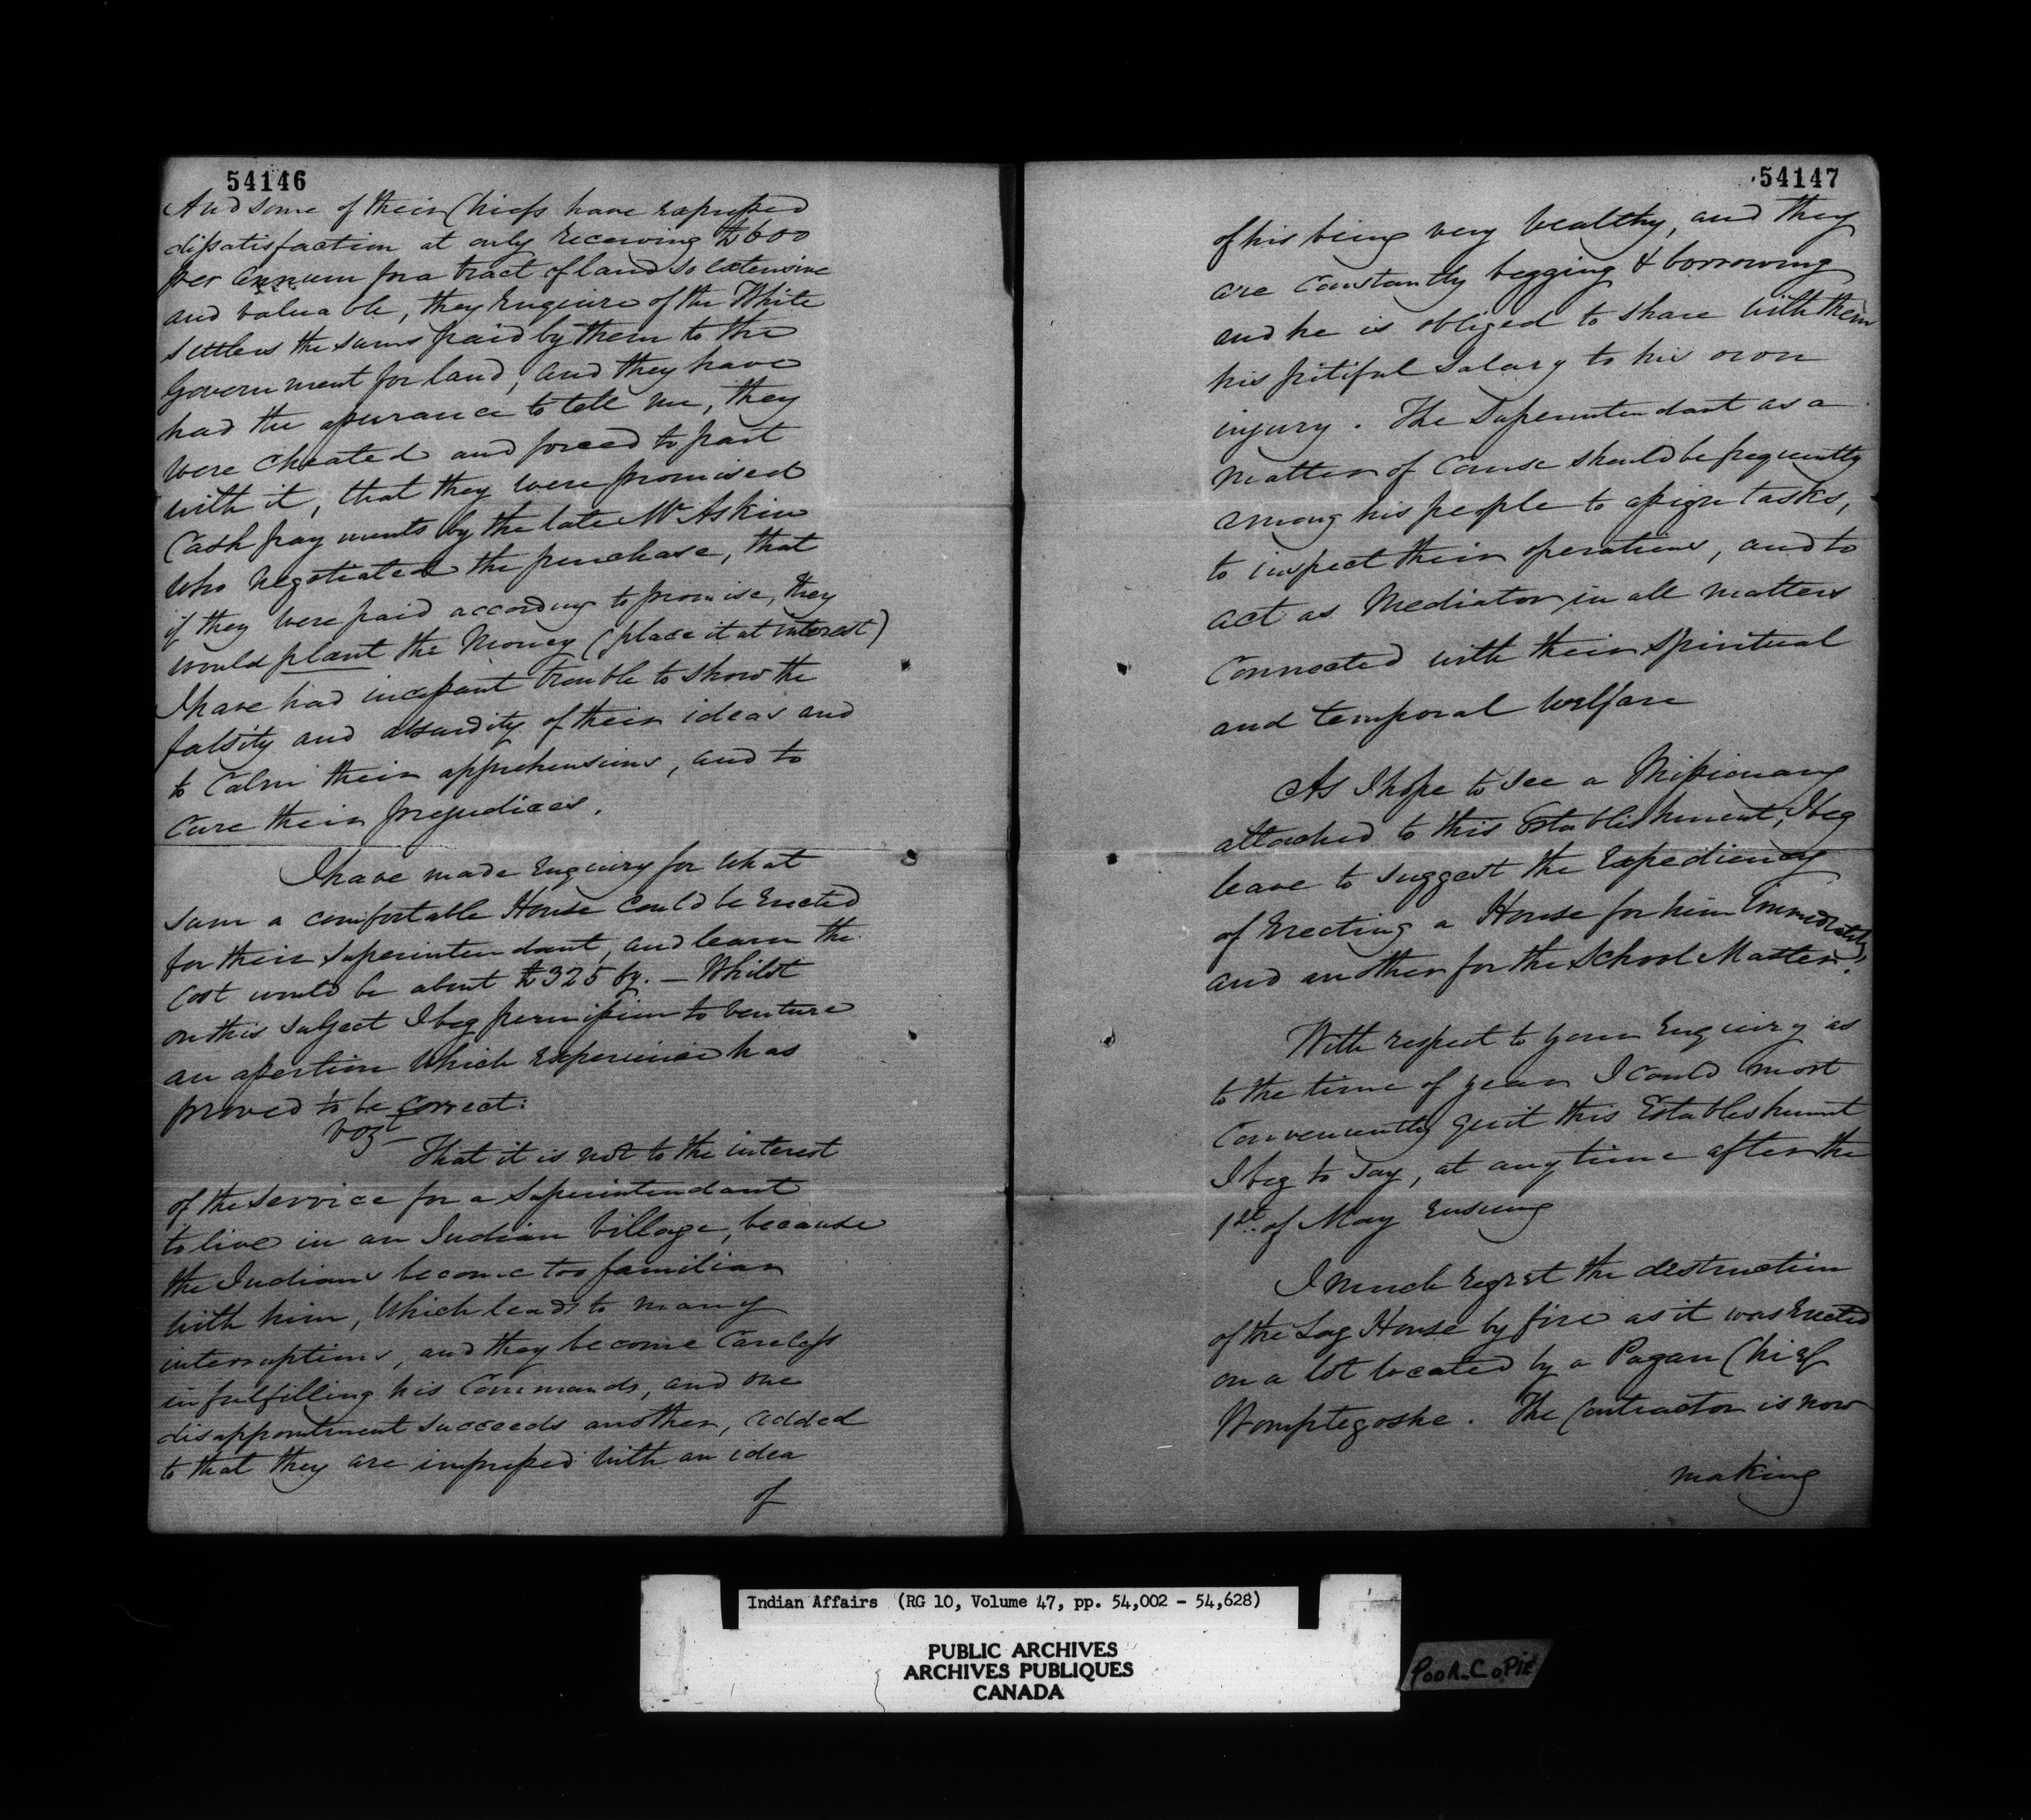 54146
And some of their Chiefs have expressed
dissatisfaction at only receiving £600
per annum for a tract of land so extensive
and valuable, they Enquire of the White
settlers the sums paid by them to the
Government for land, and they have
had the assurance to tell me, they
were cheated and forced to part
with it, that they were promised
Cash payments by the late Mr Askin
who negotiated the purchase, that
if they were paid according to promise, they
would plant the Money (place it at interest)
I have had incessant trouble to show the
falsity and absurdity of their ideas and
to Calm their apprehensions, and to
Cure their prejudices.
I have made Enquiry for what
sum a comfortable House could be Erected
for their Superintendant, and learn the
Cost would be about £325 Cy. — Whilst
on this subject I beg permission to venture
an assertion which experience has
proved to be correct:
vizt
That it is not to the interest
of the service for a Superintendant
to live in an Indian Village, because
the Indians become too familiar
with him, which leads to many
interruptions, and they become Careless
in fulfilling his Commands, and one
disappointment succeeds another, added
to that they are impressed with an idea
of
54147
of his being very wealthy, and they
are Constantly begging & borrowing
and he is obliged to share with them
his pitiful salary to his own
injury. The Superintendant as a
matter of Course should be frequently
among his people to assign tasks,
to inspect their operations, and to
act as Mediator in all matters
Connected with their spiritual
and temporal welfare
As I hope to see a Missionary
attached to this Establishment, I beg
leave to suggest the Expediency
of Erecting a House for him immediately,
and another for the School Master.
With respect to your Enquiry as
to the time of year I could most
Conveniently quit this Establishment
I beg to say, at any time after the
1st of May Ensuing
I much regret the destruction
of the Log House by fire as it was Erected
on a lot located by a Pagan Chief
The Contractor is now
making
Indian Affairs (RG 10, Volume 47, pp. 54,002 - 54,628)
PUBLIC ARCHIVES
ARCHIVES PUBLIQUES
CANADA
POOR COPIE